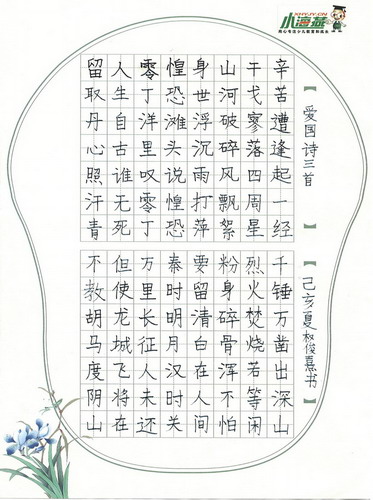 小海燕
【爱国诗三首】
辛苦遭逢起一经
干戈寥落四周星
山河破碎风飘絮
身世浮沉雨打萍
惶恐滩头说惶恐
零丁洋里叹零丁
人生自古谁无死
留取丹心照汗青
千锤万凿出深山
烈火焚烧若等闲
粉身碎骨浑不怕
要留清白在人间
秦时明月汉时关
万里长征人未还
但使龙城飞将在
不教胡马度阴山
【己亥夏权俊熹书】